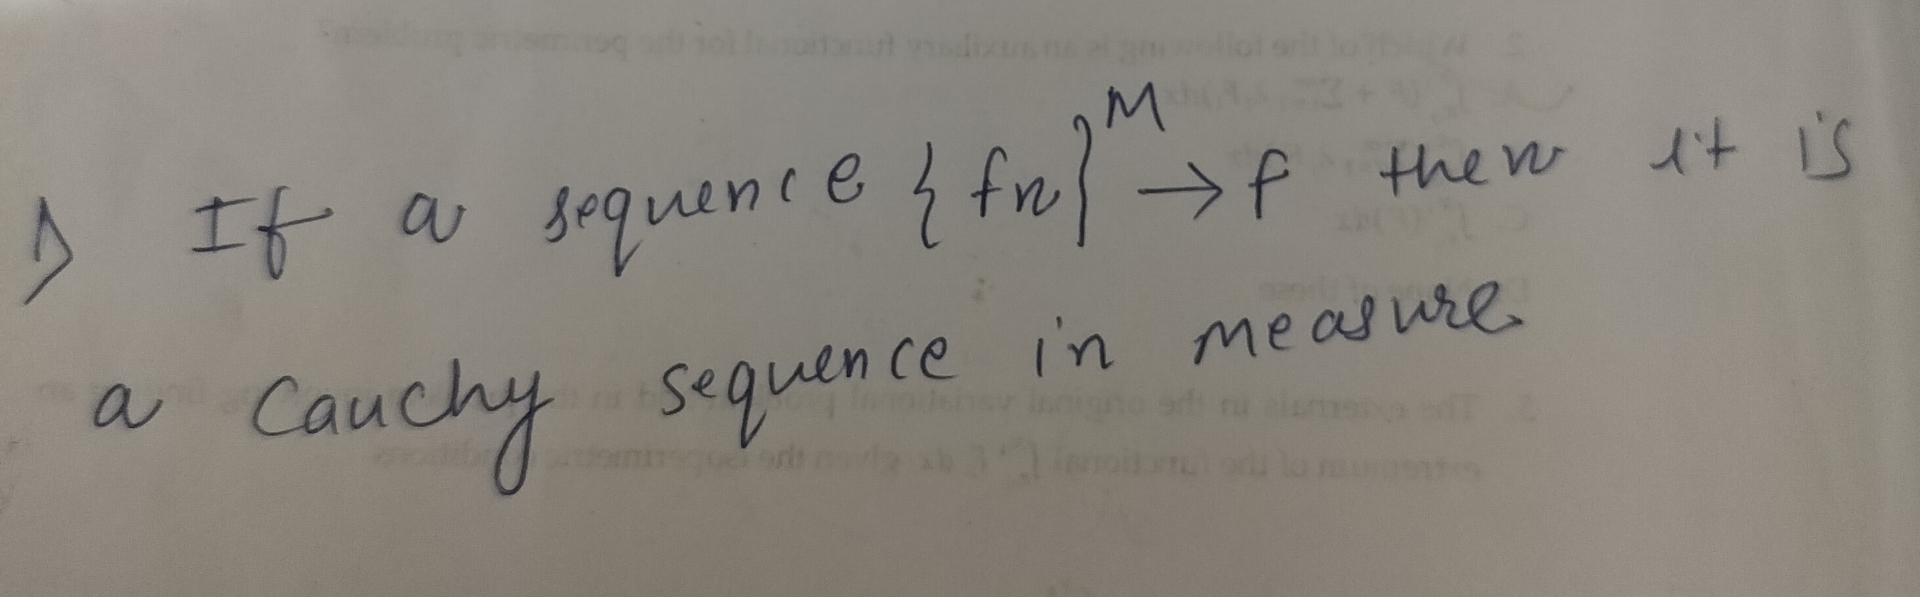 1) If a sequence {fn} M → f then it is
a Cauchy sequence in measure